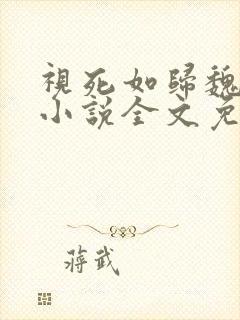 視死如歸魏
小說全文免
蔣武